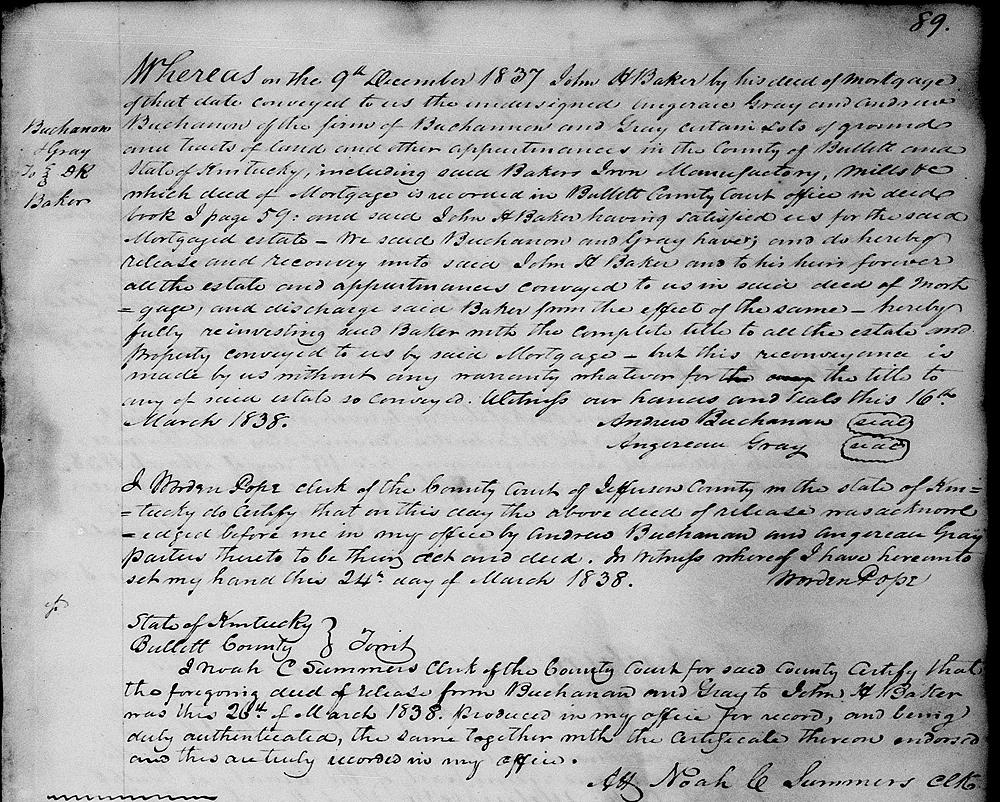 89.
Whereas on the 9th December 1837 John H Baker by his deed of mortgage
of that date conveyed to us the undersigned Angereau Gray and Andrew
Buchanon of the firm of Buchannon and Gray certain Lots of ground
and tracts of land and other appurtinances in the County of Bullett and
State of Kentucky, including said Bakers Iron Manufactory, Mills &c
which deed of Mortgage is recorded in Bullett County Court office in deed
book I page 59: and said John H Baker having satisfied us for the said
Mortgaged estate - We said Buchanon and Gray have; and do hereby
release and reconvey unto said John H Baker and to his heirs forever
all the estate and appurtinances conveyed to us in said deed of Mort
=gage, and discharge said Baker from the effect of the same - hereby
fully reinvesting said Baker with the complete title to all the estate and
Property conveyed to us by said Mortgage - but this reconveyance is
made by us without any warranty whatever for the title to
any of said estate so conveyed. Witness our hands and seals this 16th
March 1838.
Andrew Buchanan seal
Angereau Gray seal
Buchanon
& Gray
To DR
Baker
I Worden Pope clerk of the County Court of Jefferson County in the state of Ken=
=tucky do certify that on this day the above deed of release was acknowl
=edged before me in my office by Andrew Buchanan and Angereau Gray
parties thereto to be their act and deed. In Witness whereof I have hereunto
set my hand this 24th day of March 1838.
Worden Pope
State of Kentucky
Bullett County } Scit
I Noah C Summers Clerk of the County Court for said County Certify that
the foregoing deed of release from Buchanan and Gray to John H Baker
was this 26th of March 1838. Produced in my office for record, and being
duly authenticated, the same together with the certificate thereon endorsed
and this are truly recorded in my office.
Att Noah C Summers Clk